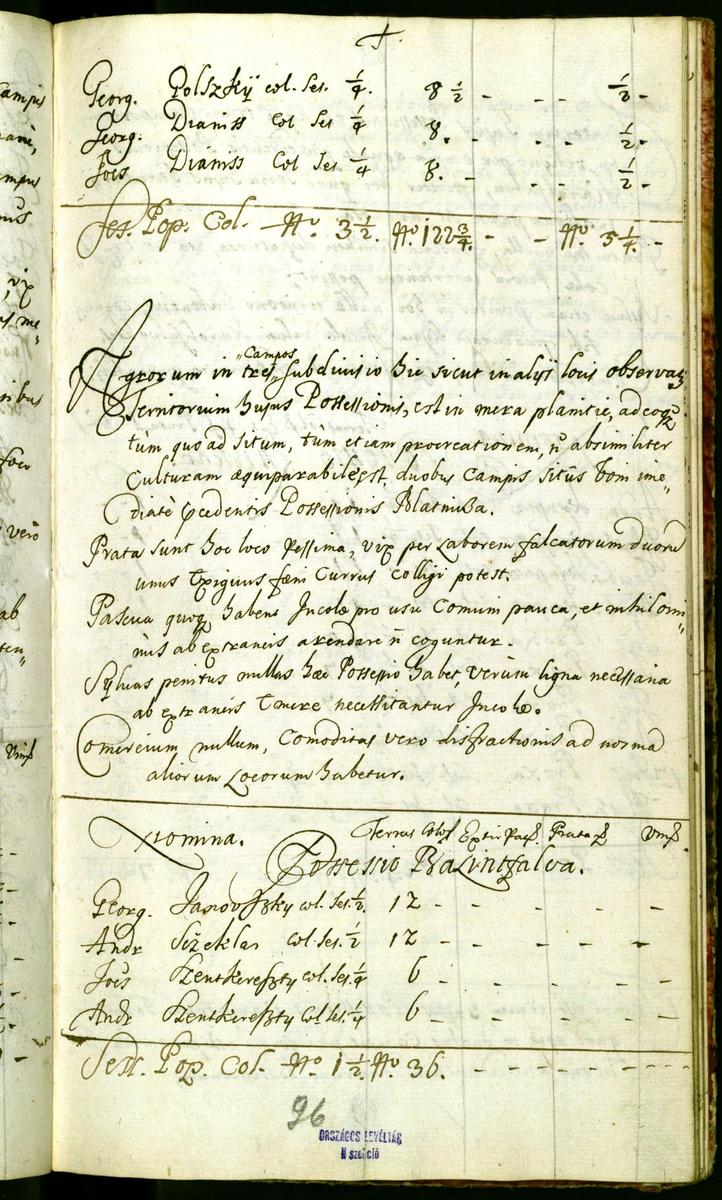 Georg. Polszkÿ col. Ses. 1/4. 8 1/2 - - - 1/2 -
Georg. Dianiss Col Ses 1/4 8. - - - 1/2 -
Jões Dianiss Col Ses 1/4 8. - - - 1/2 -
Ses. Pop. Col. Nº. 3 1/2. Nº. 122 3/4. - - Nº. 5 1/4. -
Campos
Agrorum in tres subdivisio hic sicut in alÿs locis observat
Territorium hujus Possessionis, est in mera planitie, adeoq
tùm quo ad situm, tùm etiam procreationem, ñ absimiliter
Culturam æquiparabile est, duobus Campis sitûs boni ime„
diatè præcedentis Possessionis Blatnitza.
Prata sunt hoc loco Pessima, vix per Laborem falcatorum duorũ
unus Exiguus fæni Currus colligi potest.
Pascua quoq habent Incolæ pro usu Comuni pauca, et nihilomi„
nus ab extraneis arendare ñ coguntur.
Sÿlvas penitus nullas hæc Possessio habet, verùm ligna necessaria
ab extraneis Emere necessitantur Incolæ.
Comercium nullum, Comoditas vero distractionis ad norma
aliorum Locorum habetur.
Nomina. Terrus Colos Extir Prata Vin
Possessio Balintfalva.
Georg. Janovszky col. Ses. 1/2. 12 - - - - -
Andr Sÿzeklar col. Ses. 1/2 12 - - - - -
Jões Szentkereszty col. Ses. 1/4 6 - - - - -
Andr Szentkereszty col Ses. 1/4 6 - - - - -
Sess. Pop. Col. Nº. 1 1/2 Nº 36. - - - - - - -
96
ORSZÁGOS LEVÉLTÁR
N szekció